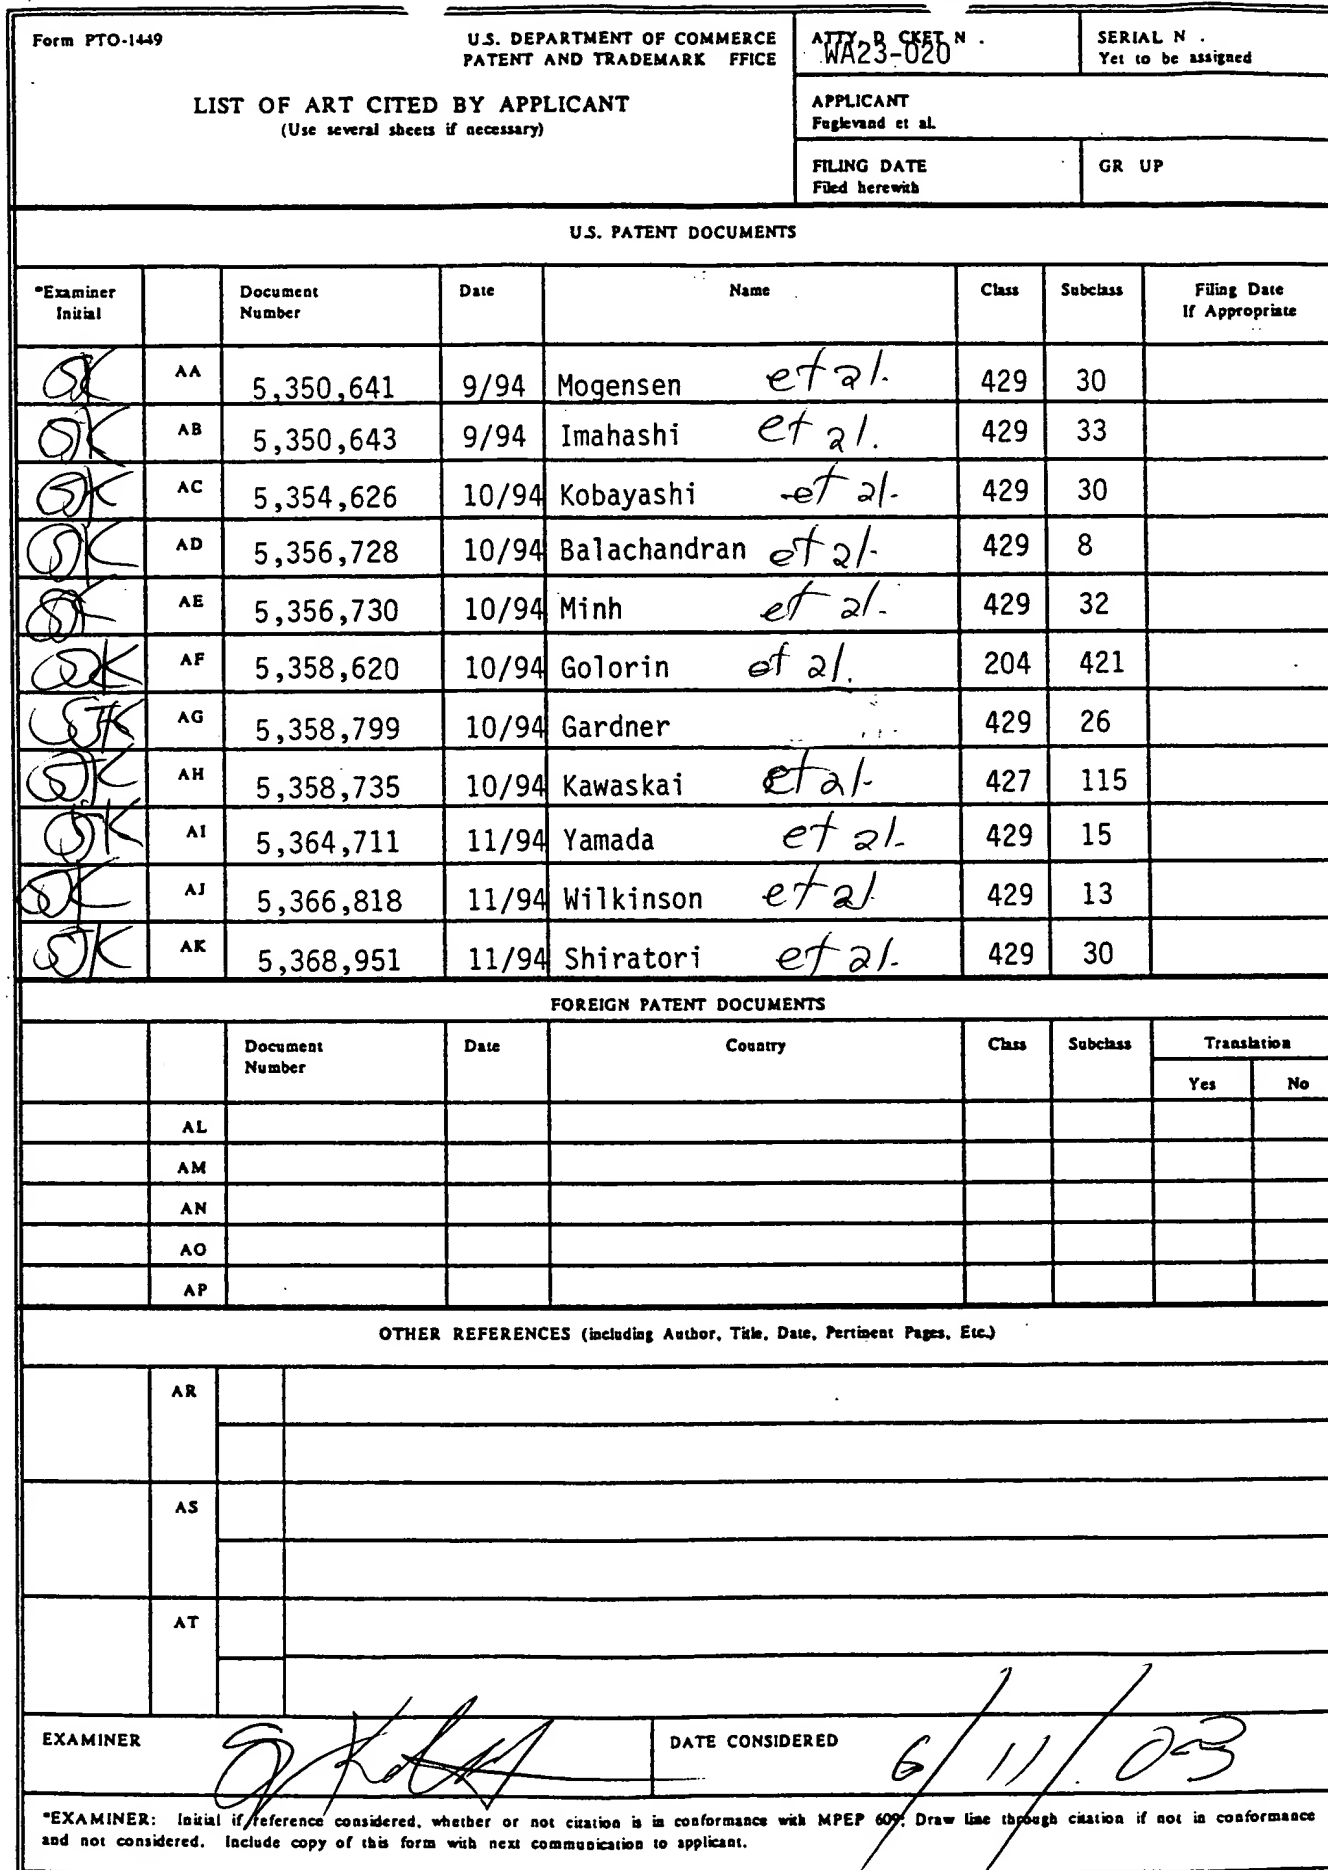 Form PTO-1449
U.S. DEPARTMENT OF COMMERCE
PATENT AND TRADEMARK FFICE
ATTY. D CKET N .
WA23-020
SERIAL N .
Yet to be assigned
LIST OF ART CITED BY APPLICANT
(Use several sheets if necessary)
APPLICANT
Fuglevand et al.
FILING DATE
Filed herewith
GR UP
U.S. PATENT DOCUMENTS
*Examiner Initial Document Number Date Name Class Subclass Filing Date If Appropriate
AA 5,350,641 9/94 Mogensen et al. 429 30
AB 5,350,643 9/94 Imahashi et al. 429 33
AC 5,354,626 10/94 Kobayashi et al. 429 30
AD 5,356,728 10/94 Balachandran et al. 429 8
AE 5,356,730 10/94 Minh et al. 429 32
AF 5,358,620 10/94 Golorin et al. 204 421
AG 5,358,799 10/94 Gardner 429 26
AH 5,358,735 10/94 Kawaskai et al. 427 115
AI 5,364,711 11/94 Yamada et al. 429 15
AJ 5,366,818 11/94 Wilkinson et al. 429 13
AK 5,368,951 11/94 Shiratori et al. 429 30
FOREIGN PATENT DOCUMENTS
Document Number Date Country Class Subclass Translation
Yes No
AL
AM
AN
AO
AP
OTHER REFERENCES (including Author, Title, Date, Pertinent Pages, Etc.)
AR
AS
AT
EXAMINER
DATE CONSIDERED 6/11/03
*EXAMINER: Initial if reference considered, whether or not citation is in conformance with MPEP 609; Draw line through citation if not in conformance
and not considered. Include copy of this form with next communication to applicant.